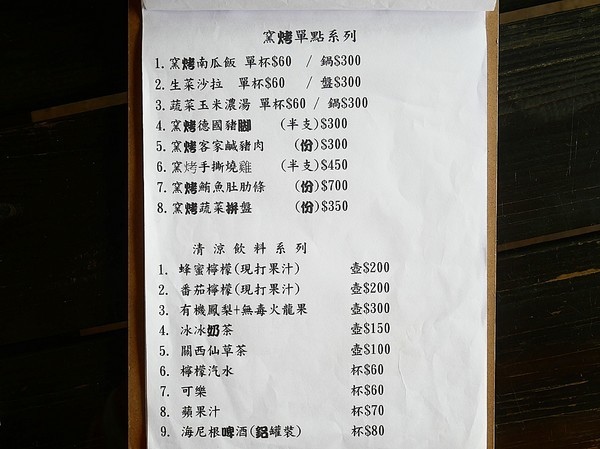 窯烤單點系列
1. 窯烤南瓜飯 單杯$60 / 鍋$300
2. 生菜沙拉 單杯$60 / 盤$300
3. 蔬菜玉米濃湯 單杯$60 / 鍋$300
4. 窯烤德國豬腳 (半支)$300
5. 窯烤客家鹹豬肉 (份)$300
6. 窯烤手撕燒雞 (半支)$450
7. 窯烤鮪魚肚肋條 (份)$700
8. 窯烤蔬菜拼盤 (份)$350
清涼飲料系列
1. 蜂蜜檸檬(現打果汁) 壺$200
2. 番茄檸檬(現打果汁) 壺$200
3. 有機鳳梨+無毒火龍果 壺$300
4. 冰冰奶茶 壺$150
5. 關西仙草茶 壺$100
6. 檸檬汽水 杯$60
7. 可樂 杯$60
8. 蘋果汁 杯$70
9. 海尼根啤酒(鋁罐裝) 杯$80